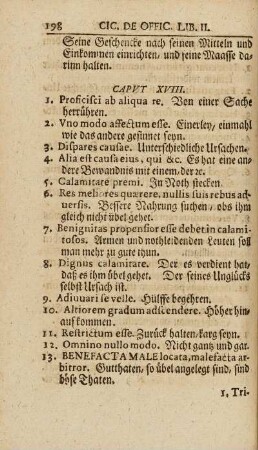 198 CIC. DE OFFIC. LIB. II.
Seine Geschencke nach seinen Mitteln und
Einkommen einrichten, und seine Maasse da-
rinn halten.
CAPUT XVIII.
1. Proficisci ab aliqua re. Von einer Sache
herrühren.
2. Vno modo affectum esse. Einerley, einmahl
wie das andere gesinnet seyn.
3. Dispares causae. Unterschiedliche Ursachen.
4. Alia est causa eius, qui &c. Es hat eine an-
dere Bewandnis mit einem, der ꝛc.
5. Calamitate premi. In Noth stecken.
6. Res meliores quaerere, nullis suis rebus ad-
versis. Bessere Nahrung suchen, obs ihm
gleich nicht übel gehet.
7. Benignitas propensior esse debet in calami-
tosos. Armen und nothleidenden Leuten soll
man mehr zu gute thun.
8. Dignus calamitate. Der es verdient hat,
daß es ihm übel gehet. Der seines Unglücks
selbst Ursach ist.
9. Adiuuari se velle. Hülffe begehren.
10. Altiorem gradum adscendere. Höher hin-
auf kommen.
11. Restrictum esse. Zurück halten, karg seyn.
12. Omnino nullo modo. Nicht gantz und gar.
13. BENEFACTA MALE locata, malefacta ar-
bitror. Gutthaten, so übel angelegt sind, sind
böse Thaten.
1. Tri-